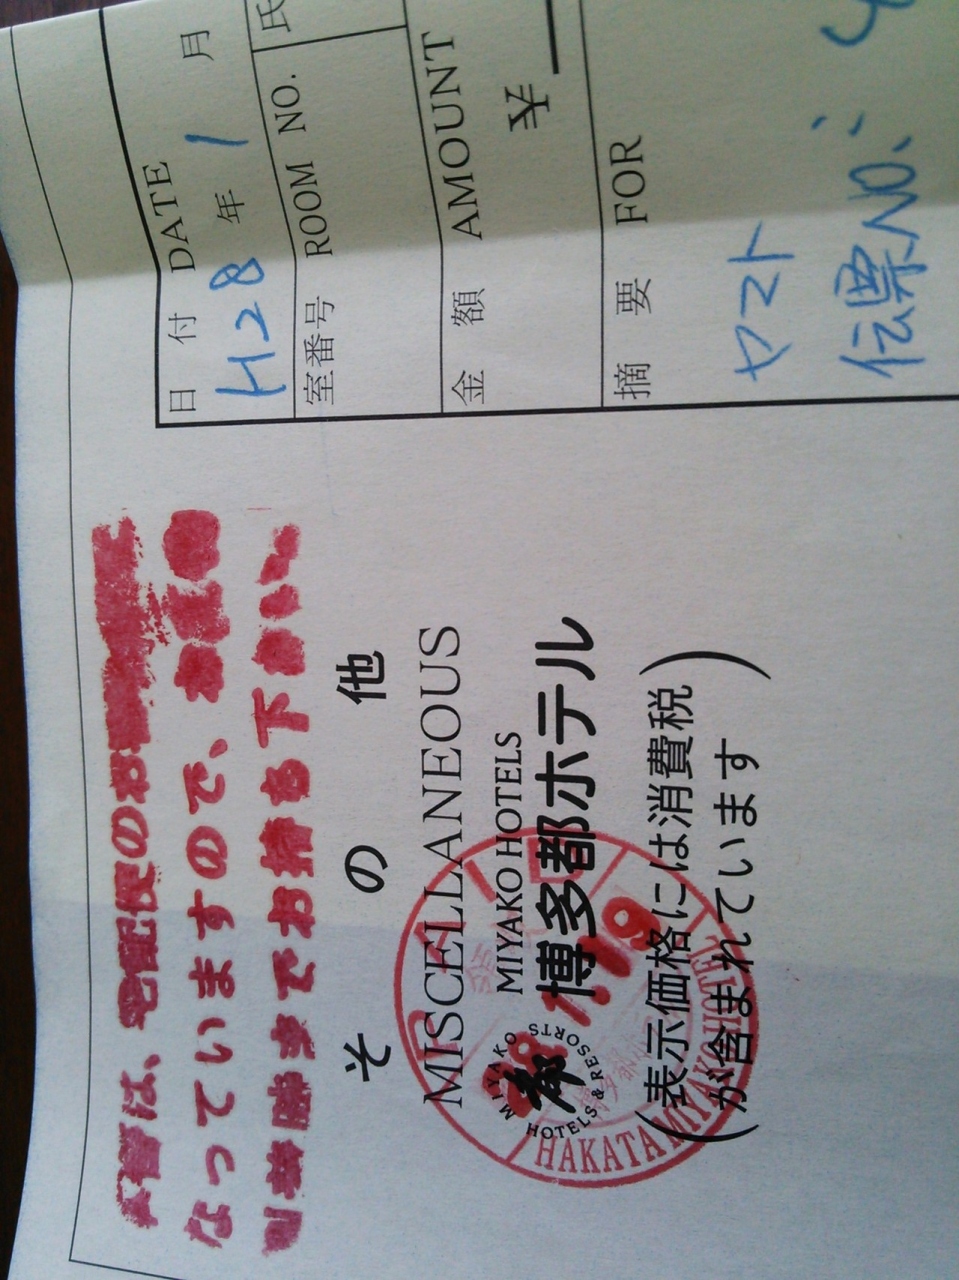 は、宅配便のお
なっていますので、
お持ち下さい
その他
MISCELLANEOUS
MIYAKO HOTELS
博多都ホテル
MIYAKO
都
HOTELS & RESORTS
(表示価格には消費税
が含まれています)
HAKATA MIYAKO HOTEL
28.1.19
日付 DATE
H28年1月
室番号 ROOM NO.
氏
金額 AMOUNT
¥
摘要 FOR
ヤマト
伝票NO.: